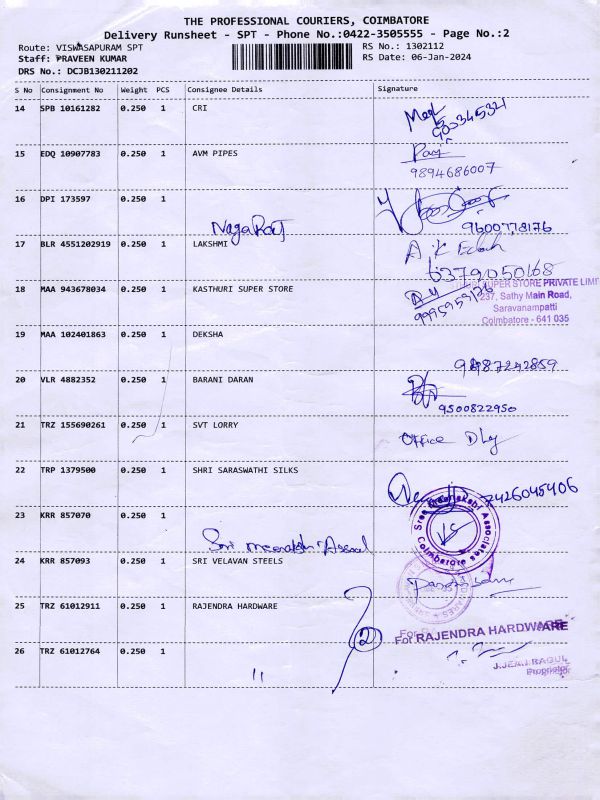 THE PROFESSIONAL COURIERS, COIMBATORE
Delivery Runsheet - SPT - Phone No.:0422-3505555 - Page No.:2
Route: VISWASAPURAM SPT
RS No.: 1302112
Staff: PRAVEEN KUMAR
RS Date: 06-Jan-2024
DRS No.: DCJB130211202
S No Consignment No Weight PCS Consignee Details Signature
14 SPB 10161282 0.250 1 CRI
15 EDQ 10907783 0.250 1 AVM PIPES
9894686007
16 DPI 173597 0.250 1
NagaRaj
9600778176
17 BLR 4551202919 0.250 1 LAKSHMI
6379050168
18 MAA 943678034 0.250 1 KASTHURI SUPER STORE
SUPER STORE PRIVATE LIMI
237, Sathy Main Road,
Saravanampatti
Coimbatore - 641 035
19 MAA 102401863 0.250 1 DEKSHA
20 VLR 4882352 0.250 1 BARANI DARAN
9500822950
21 TRZ 155690261 0.250 1 SVT LORRY
Office Dly
22 TRP 1379500 0.250 1 SHRI SARASWATHI SILKS
7426045406
Sree Meenakshi Associates
Coimbatore
23 KRR 857070 0.250 1
Sri meenakshi Assoc
24 KRR 857093 0.250 1 SRI VELAVAN STEELS
25 TRZ 61012911 0.250 1 RAJENDRA HARDWARE
2
For RAJENDRA HARDWARE
26 TRZ 61012764 0.250 1
"
J.JEAJ.RAGUL
Proprietor